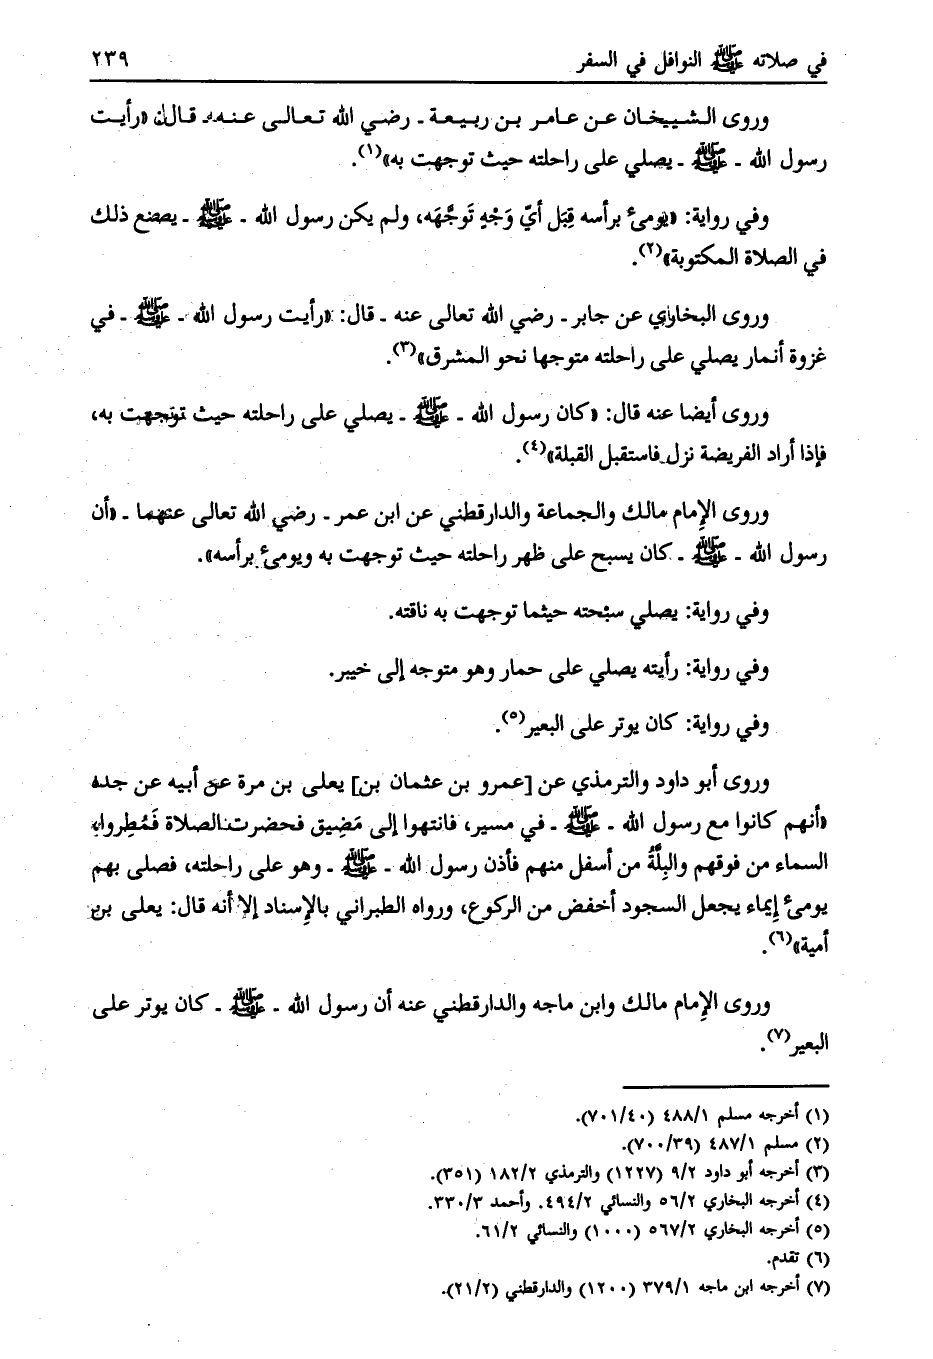 في صلاته ﷺ النوافل في السفر ٢٣٩
وروى الشيخان عن عامر بن ربيعة ـ رضي الله تعالى عنه ـ قال: «رأيت
رسول الله ـ ﷺ ـ يصلي على راحلته حيث توجهت به»(١).
وفي رواية: «يومئ برأسه قِبَل أيّ وَجْهٍ تَوَجَّهَه، ولم يكن رسول الله ـ ﷺ ـ يصنع ذلك
في الصلاة المكتوبة»(٢).
وروى البخاري عن جابر ـ رضي الله تعالى عنه ـ قال: «رأيت رسول الله ـ ﷺ ـ في
غزوة أنمار يصلي على راحلته متوجها نحو المشرق»(٣).
وروى أيضا عنه قال: «كان رسول الله ـ ﷺ ـ يصلي على راحلته حيث توجهت به،
فإذا أراد الفريضة نزل فاستقبل القبلة»(٤).
وروى الإمام مالك والجماعة والدارقطني عن ابن عمر ـ رضي الله تعالى عنهما ـ «أن
رسول الله ـ ﷺ ـ كان يسبح على ظهر راحلته حيث توجهت به ويومئ برأسه».
وفي رواية: يصلي سبْحته حيثما توجهت به ناقته.
وفي رواية: رأيته يصلي على حمار وهو متوجه إلى خيبر.
وفي رواية: كان يوتر على البعير(٥).
وروى أبو داود والترمذي عن [عمرو بن عثمان بن] يعلى بن مرة عن أبيه عن جده
«أنهم كانوا مع رسول الله ـ ﷺ ـ في مسير، فانتهوا إلى مَضِيق فحضرت الصلاة فَمُطِروا،
السماء من فوقهم والبِلَّةُ من أسفل منهم فأذن رسول الله ـ ﷺ ـ وهو على راحلته، فصلى بهم
يومئ إيماء يجعل السجود أخفض من الركوع، ورواه الطبراني بالإسناد إلا أنه قال: يعلى بن
أمية»(٦).
وروى الإمام مالك وابن ماجه والدارقطني عنه أن رسول الله ـ ﷺ ـ كان يوتر على
البعير(٧).
(١) أخرجه مسلم ٤٨٨/١ (٧٠١/٤٠).
(٢) مسلم ٤٨٧/١ (٧٠٠/٣٩).
(٣) أخرجه أبو داود ٩/٢ (١٢٢٧) والترمذي ١٨٢/٢ (٣٥١).
(٤) أخرجه البخاري ٥٦/٢ والنسائي ٤٩٤/٢. وأحمد ٣٣٠/٣.
(٥) أخرجه البخاري ٥٦٧/٢ (١٠٠٠) والنسائي ٦١/٢.
(٦) تقدم.
(٧) أخرجه ابن ماجه ٣٧٩/١ (١٢٠٠) والدارقطني (٢١/٢).